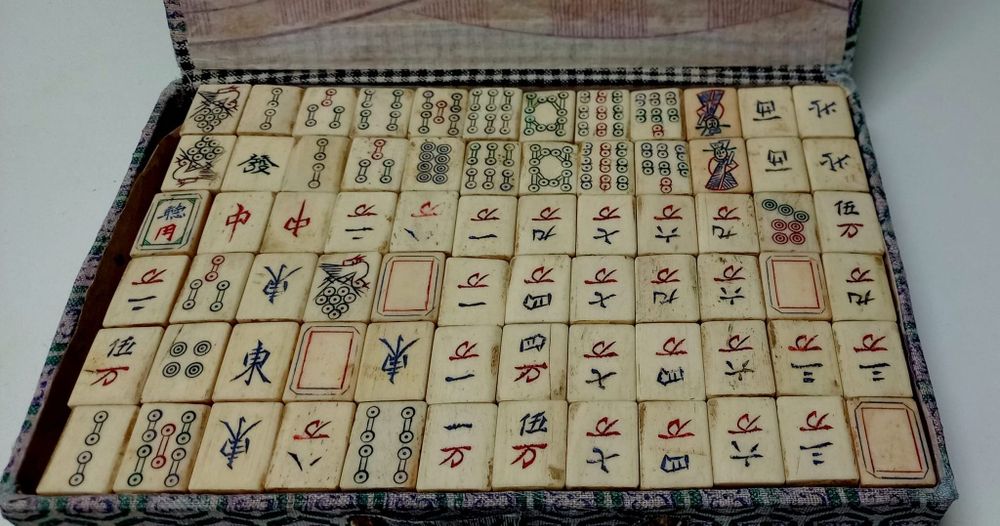 西 北
發 西 北
聽用 中 中 二万 八万 一万 九万 七万 六万 九万 伍万
二万 東 一万 四万 七万 九万 六万 九万
伍万 東 東 一万 四万 七万 四万 六万 三万 三万
東 八万 一万 伍万 七万 四万 六万 三万